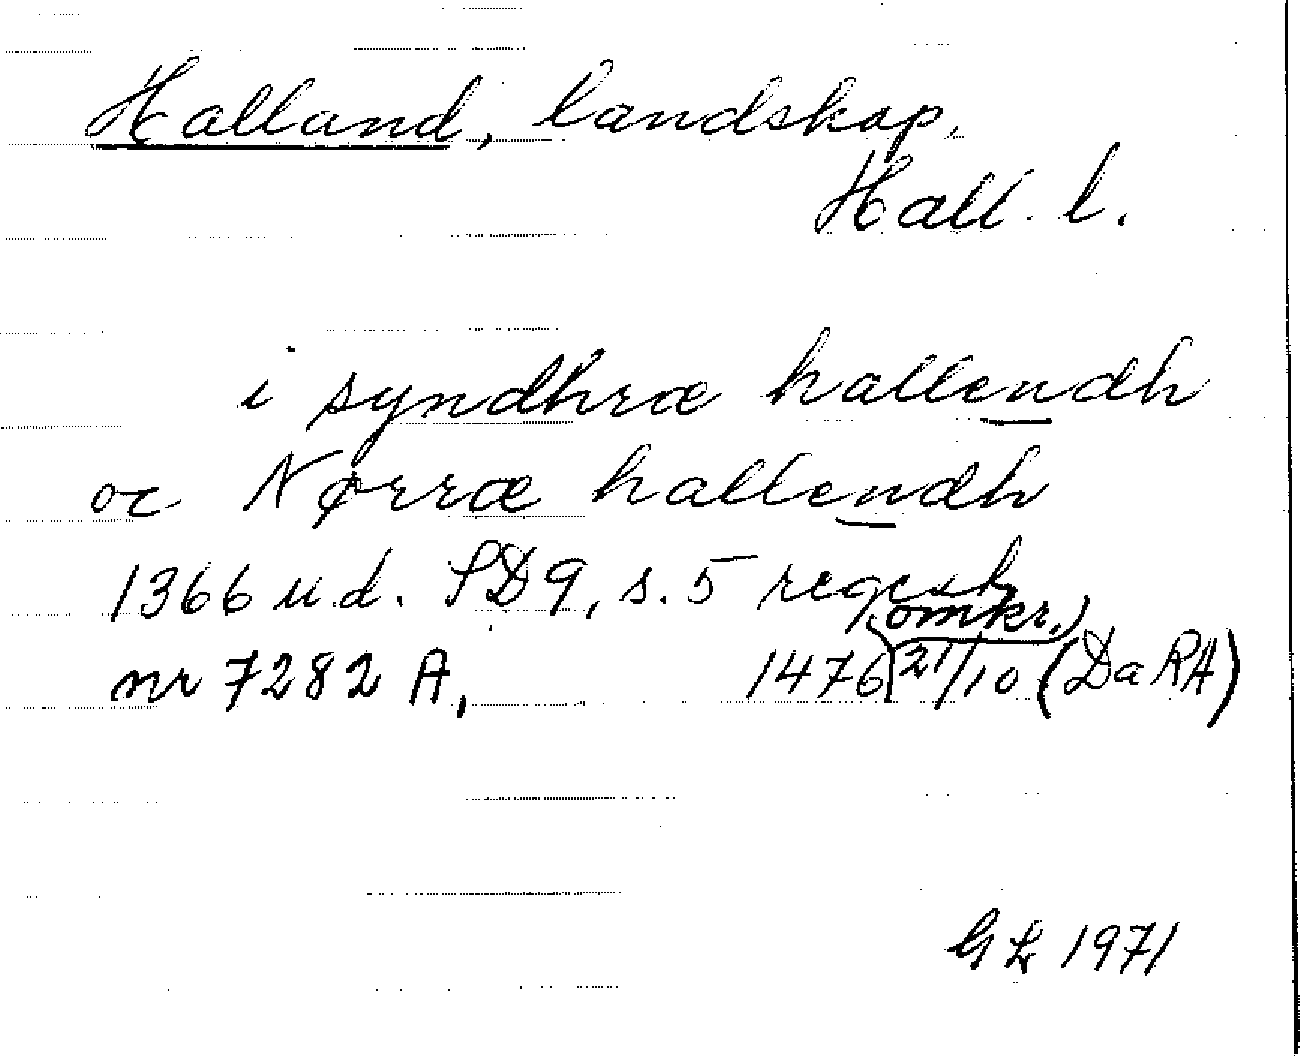 Halland, landskap.
Hall. l.
i syndhræ hallendh
oc Nørræ hallendh
1366 u.d. SD9, s. 5 regest
(omkr.)
nr 7282 A, 1476 21/10 (Da RA)
GL 1971